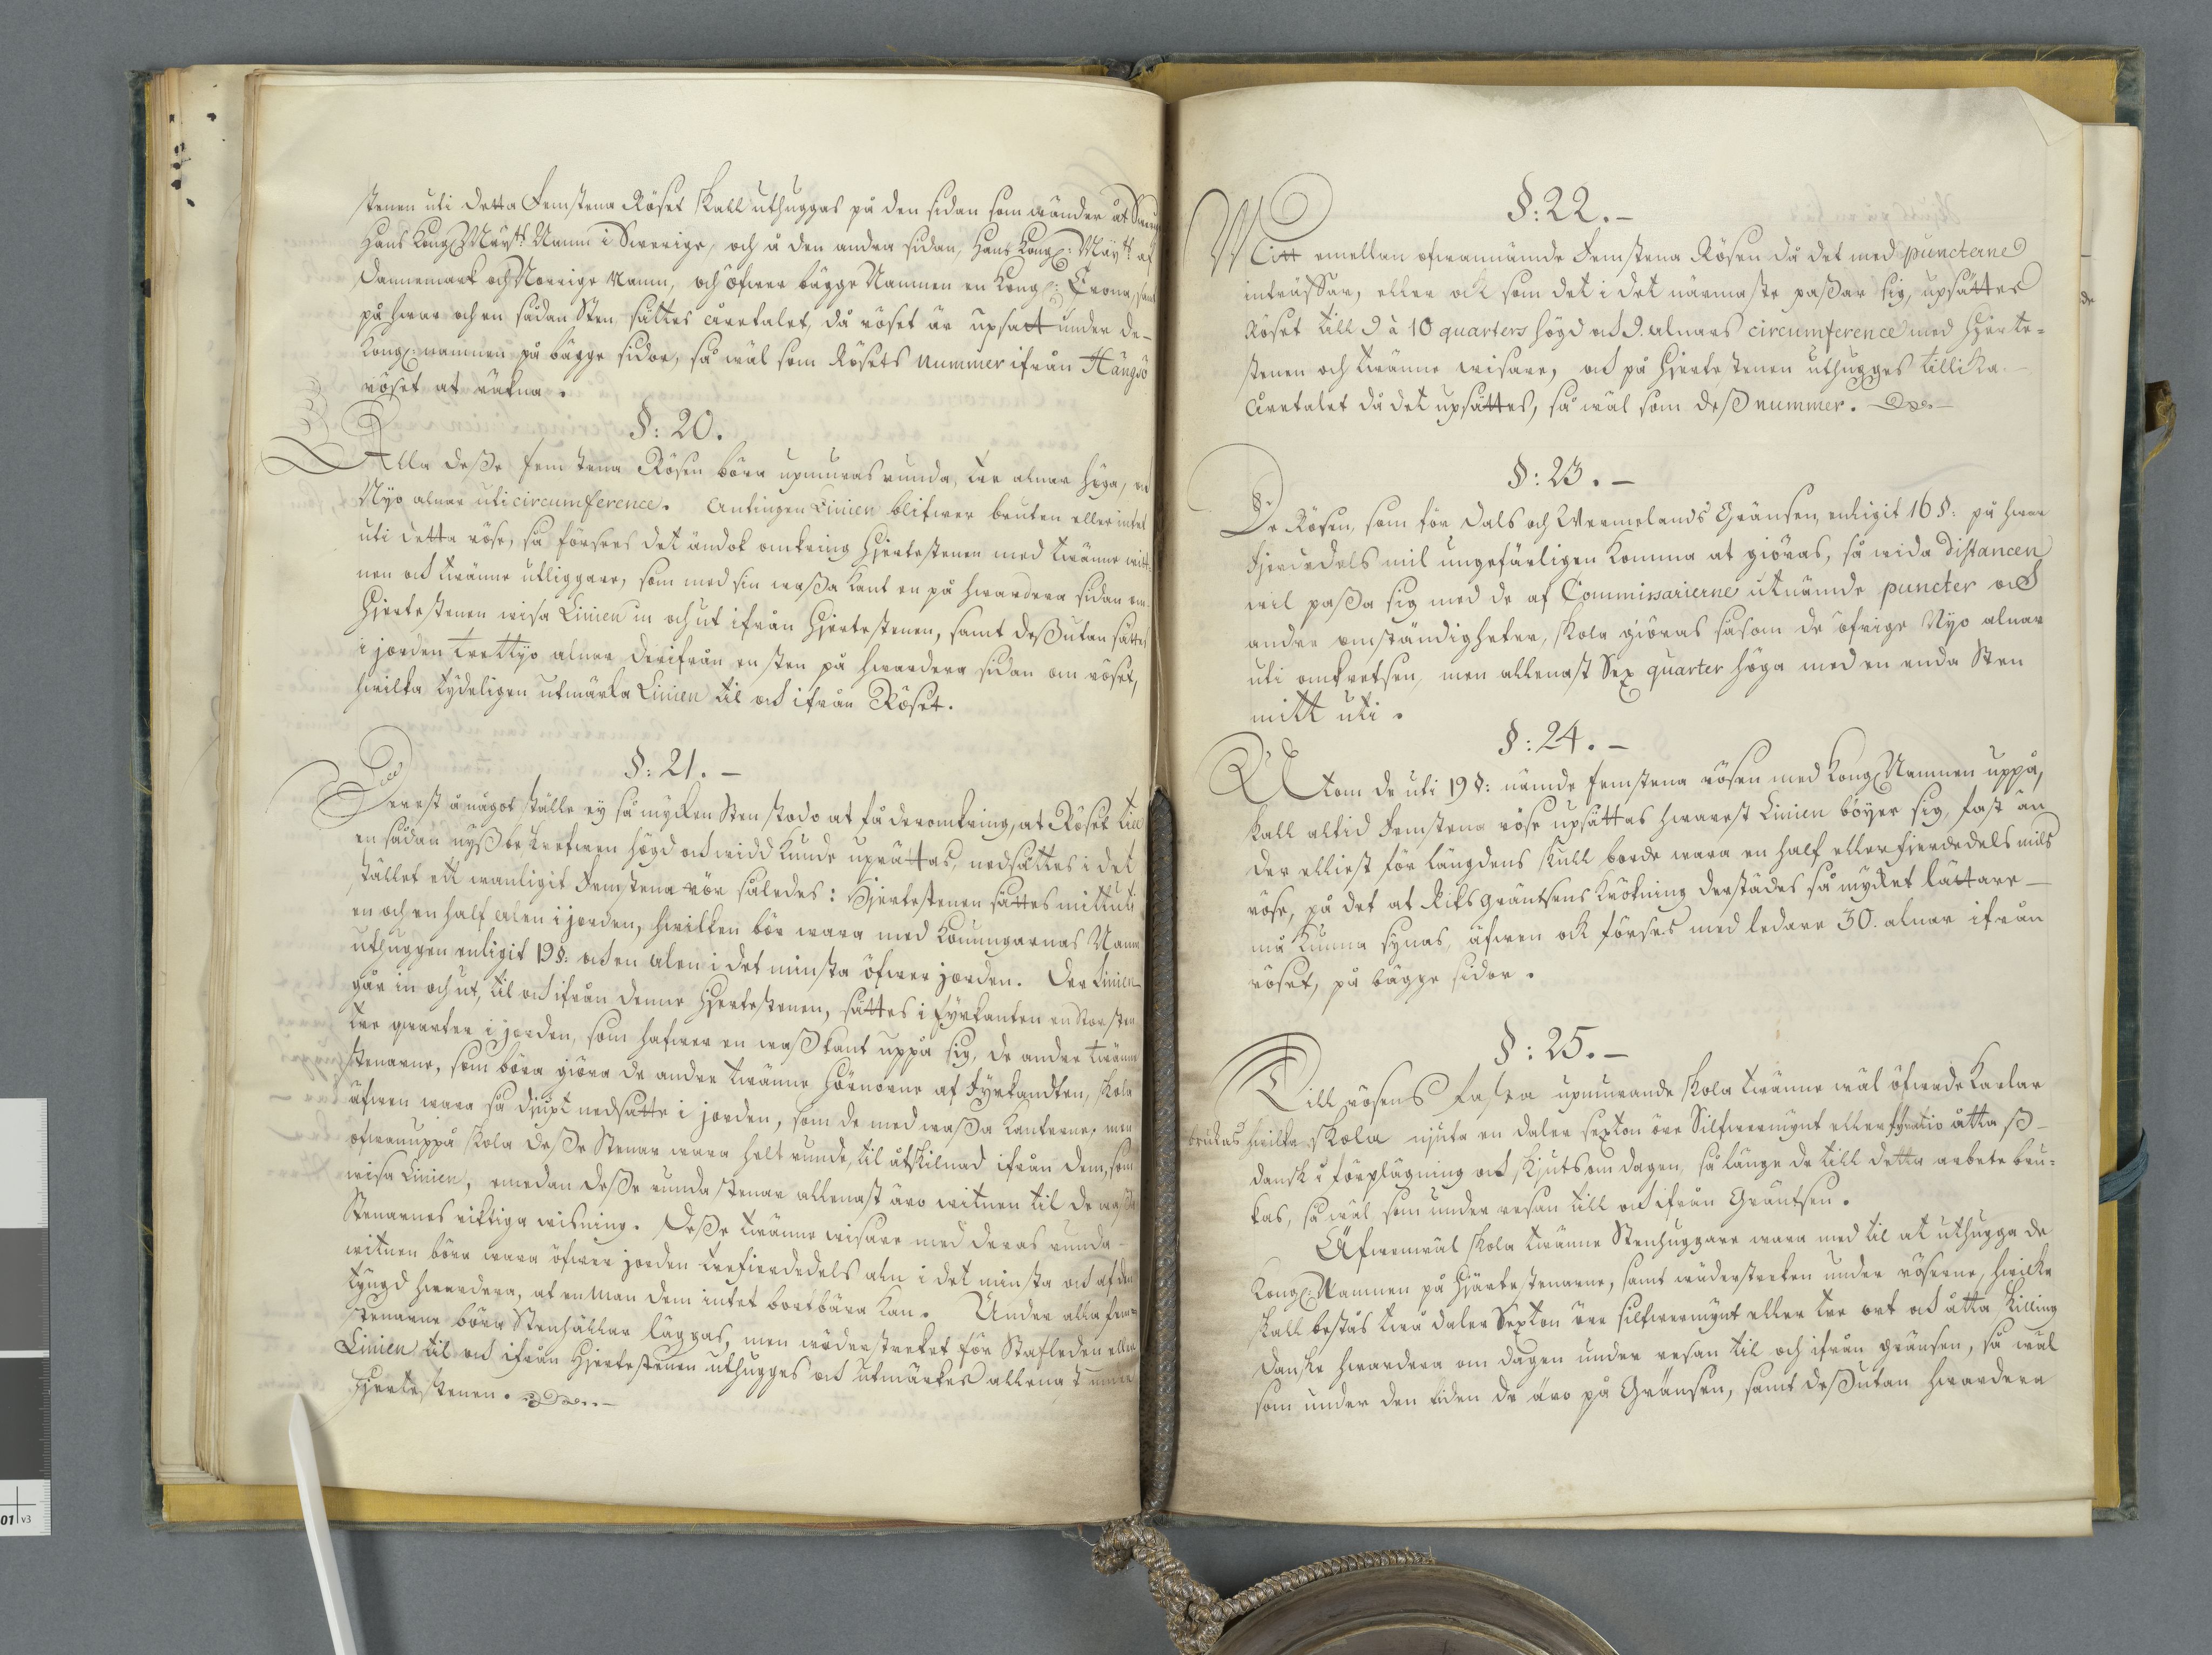 stenen uti detta Femstena Röset skall uthuggas på den sidan som wänder åt
Hans Kongl: May:tz Namn i Swerige, och å den andra sidan, Hans Kongl: May:tz af
Dannemark och Norrige Namn, och öfwer bägge Namnen en Kongl: Crona, samt
på hwar och en sådan Sten sättes åretalet, då röset är upsatt under de
Kongl: namnen på bägge sidor, så wäl som Rösets Nummer ifrån
röset at räkna.
§: 20.
Alla desse femstena Rösen böra upmuras runda, tre alnar höga, och
Nyo alnar uti circumference. Antingen Linien blifwer bruten eller intet
uti detta röse, så förses det ändok omkring Hjertestenen med twänne witt-
nen och twänne utliggare, som med sin wassa kant en på hwardera sidan om
Hjertestenen wisa Linien in och ut ifrån Hjertestenen, samt dessutan sättes
i jorden trettyo alnar derifrån en sten på hwardera sidan om röset,
hwilka tydeligen utmärka Linien til och ifrån Röset.
§: 21.–
Derest å något ställe ey så mycken Sten stodo at få deromkring, at Röset till
en sådan nyss beskrefwen högd och widd kunde uprättas, nedsättes i det
stället ett wanligit Femstena rör således: Hjertestenen sättes mitt uti
en och en half alen i jorden, hwilken bör wara med Konungarnas Namn
uthuggen enligit 19 §: och en alen i det minsta öfwer jorden. Der Linien
går in och ut, til och ifrån denne Hjertestenen, sättes i fyrkanten en stor sten
tre qwarter i jorden, som hafwer en wass kant uppå sig, de andre twänne
stenarne, som böra giöra de andre twänne hörnorne af Fyrkandten, skola
äfwen wara så djupt nedsatte i jorden, som de med wassa kanterne, men
ofwanuppå skola desse Stenar wara helt runde, til åtskilnad ifrån dem, som
wisa Linien, emedan desse runda stenar allenast äro witnen til de wassa
Stenarnes riktiga wisning. Desse twänne wisare med deras runda
witnen böra wara öfwer jorden trefierdedels aln i det minsta och af den
tyngd hwardera, at en Man dem intet bortbära kan. Under alla fem
stenarne böra Stenhällar läggas, men wäderstreket för Stafleden eller
Linien til och ifrån Hjertestenen uthugges och utmärkes allenast under
Hjertestenen.
§: 22.–
Mitt emellan ofwannämde Femstena Rösen då det med puncterne
inträffar, eller ock som det i det närmaste passar sig, upsättes
Röset till 9 à 10 quarters högd och 9. alnars circumference med Hjerte-
stenen och twänne wisare, och på Hjertestenen uthugges tillika
åretalet då det upsättes, så wäl som dess nummer.
§: 23.–
De Rösen, som för Dals och Wermelands Gränsen, enligit 16 §: på hwar
Fjerdedels mil ungefärligen komma at giöras, så wida distancen
wil passa sig med de af Commissarierne utnämde puncter och
andre omständigheter, skola giöras såsom de öfrige Nyo alnar
uti omkretsen, men allenast Sex quarter höga med en enda Sten
mitt uti.
§: 24.–
Utom de uti 19 §: nämde femstena rösen med Kongl: Namnen uppå,
skall altid Femstena röse upsättas hwarest Linien böyer sig, fast än
der elliest för längdens skull borde wara en half eller fierdedels mils
röse, på det at Riks Gräntsens krökning derstädes så mycket lättare
må kunna synas, äfwen ock förses med ledare 30. alnar ifrån
röset, på bägge sidor.
§: 25.–
Till rösens fasta upmurande skola twänne wäl öfwade Karlar
brukas hwilka skola njuta en daler sexton öre Silfwermynt eller fyratio åtta ß
dansk i förplägning och skjuts om dagen, så länge de till detta arbete bru-
kas, så wäl som under resan till och ifrån Gräntsen.
Äfwenwäl skola twänne Stenhuggare wara med til at uthugga de
Kongl: Namnen på Hjärtestenarne, samt wäderstreken under röserne, hwilka
skall bestås twå daler Sexton öre silfwermynt eller tre ort och åtta skilling
danske hwardera om dagen under resan til och ifrån gränsen, så wäl
som under den tiden de äro på Gränsen, samt dessutan hwardera